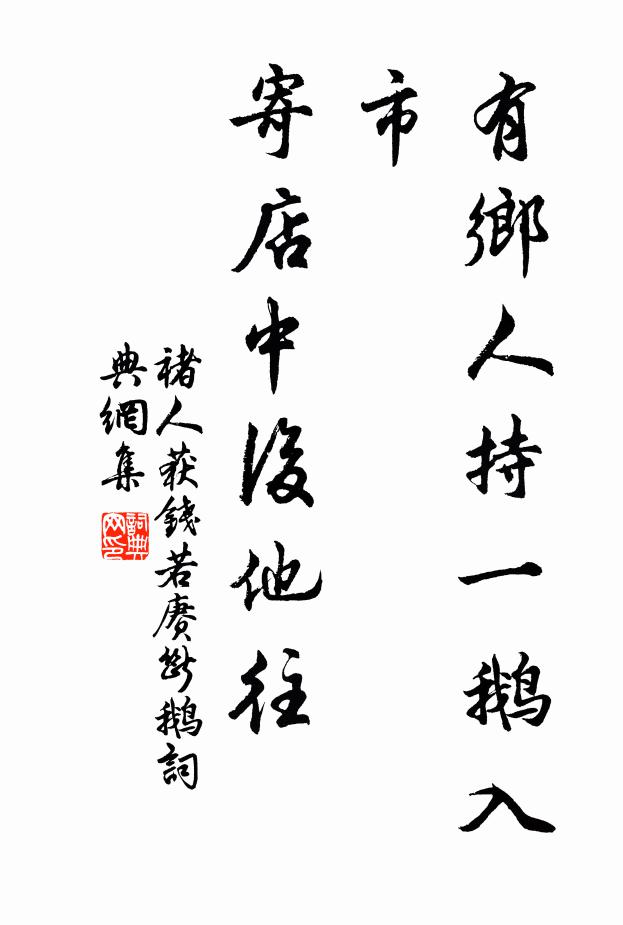 有鄉人持一鵝入
市
寄店中後他往
褚人获錢若賡斷鵝詞
典網集
詞典
网印